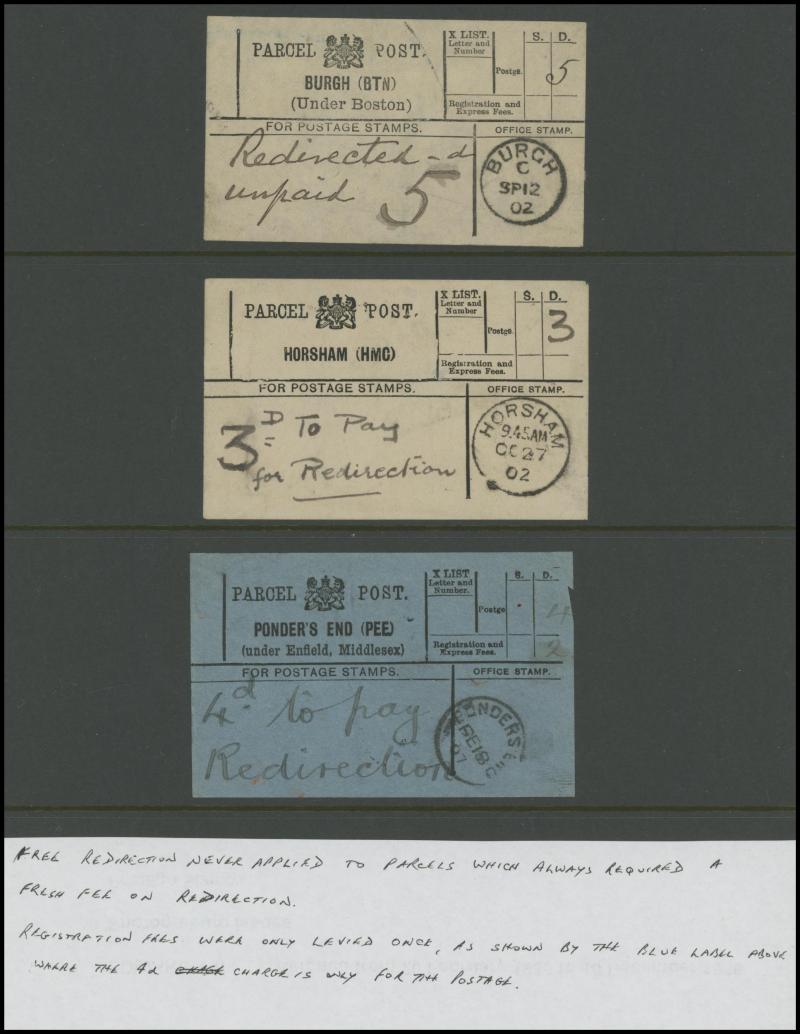 PARCEL POST.
BURGH (BTN)
(Under Boston)
X LIST.
Letter and
Number
Postge.
S. D.
5
Registration and
Express Fees.
FOR POSTAGE STAMPS.
OFFICE STAMP.
Redirected - d
unpaid 5
BURGH
C
SP12
02
PARCEL POST.
HORSHAM (HMC)
X LIST.
Letter and
Number
Postge.
S. D.
3
Registration and
Express Fees.
FOR POSTAGE STAMPS.
OFFICE STAMP.
3D To Pay
for Redirection
HORSHAM
9.45AM
OC27
02
PARCEL POST.
PONDER'S END (PEE)
(under Enfield, Middlesex)
X LIST
Letter and
Number.
Postge
S. D.
4
Registration and
Express Fees.
2
FOR POSTAGE STAMPS.
OFFICE STAMP.
4d to pay
Redirection
PONDERS END
FE18
07
FREE REDIRECTION NEVER APPLIED TO PARCELS WHICH ALWAYS REQUIRED A
FRESH FEE ON REDIRECTION.
REGISTRATION FEES WERE ONLY LEVIED ONCE, AS SHOWN BY THE BLUE LABEL ABOVE
WHERE THE 4d CHARGE IS ONLY FOR THE POSTAGE.